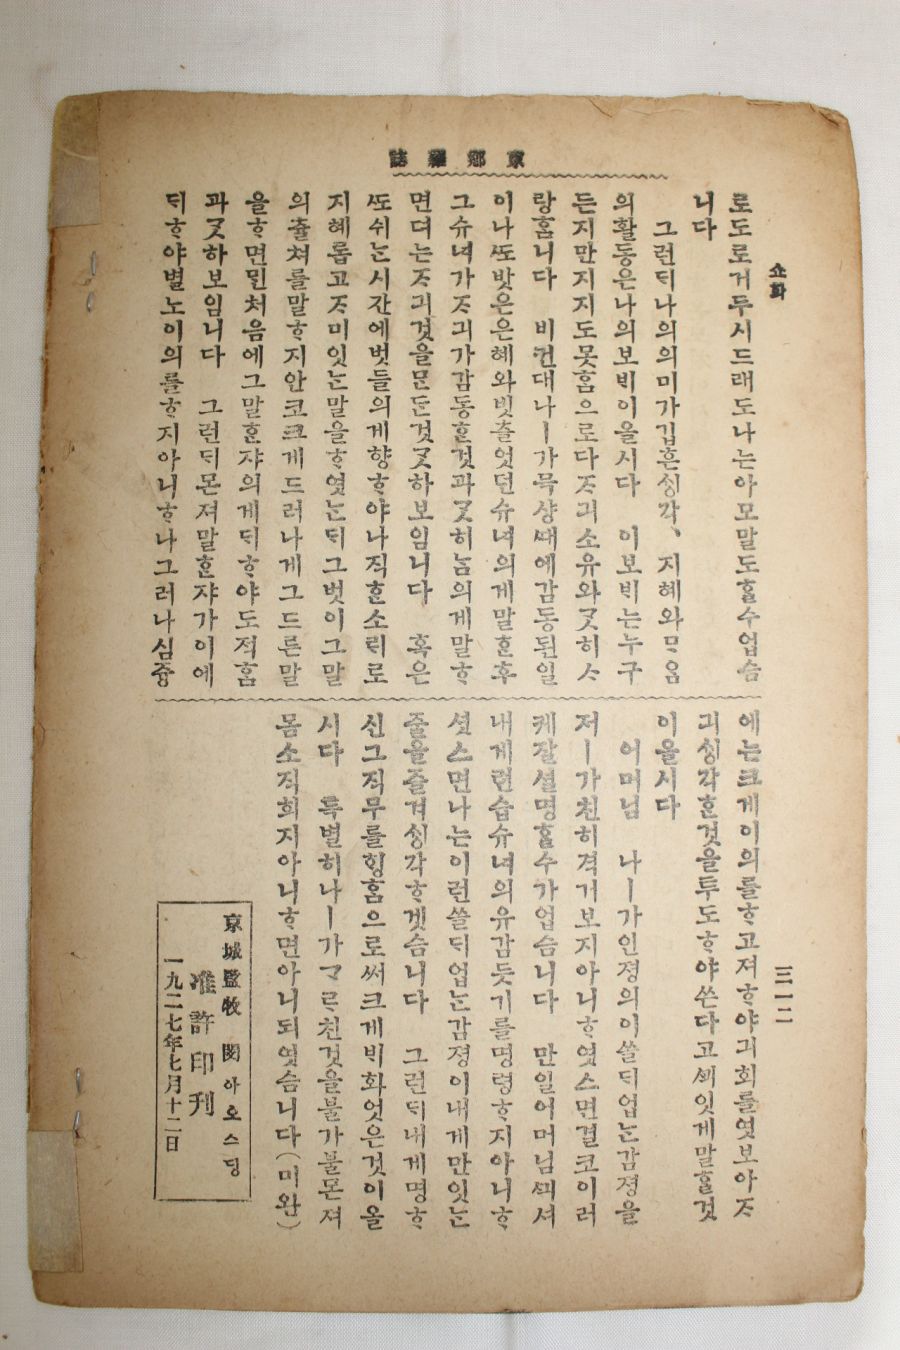 京鄕雜誌
쇼화
三一二
로도로거두시드래도나는아모말도ᄒᆞᆯ수업슴
니다
그런ᄃᆡ나의의미가깁흔ᄉᆡᆼ각、지혜와ᄆᆞᄋᆞᆷ
의활동은나의보ᄇᆡ이올시다 이보ᄇᆡ는누구
든지만지지도못ᄒᆞᆷ으로다ᄌᆞ긔소유와ᄀᆞᆺ히ᄉᆞ
랑ᄒᆞᆷ니다 비컨대나ㅣ가묵샹ᄯᅢ에감동된일
이나ᄯᅩ밧은은혜와빗츨엇던슈녀의게말ᄒᆞᆫ후
그슈녀가ᄌᆞ긔가감동ᄒᆞᆫ것과ᄀᆞᆺ히ᄂᆞᆷ의게말ᄒᆞ
면뎌는ᄌᆞ긔것을문ᄃᆞᆫ것ᄀᆞᆺ하보임니다 혹은
ᄯᅩ쉬ᄂᆞᆫ시간에벗들의게향ᄒᆞ야나직ᄒᆞᆫ소ᄅᆡ로
지혜롭고ᄌᆞ미잇ᄂᆞᆫ말을ᄒᆞ엿ᄂᆞᆫᄃᆡ그벗이그말
의츌쳐를말ᄒᆞ지안코크게드러나게그드른말
을ᄒᆞ면ᄆᆡᆫ처음에그말ᄒᆞᆫ쟈의게ᄃᆡᄒᆞ야도적ᄒᆞᆷ
과ᄀᆞᆺ하보임니다 그런ᄃᆡ몬져말ᄒᆞᆫ쟈가이에
ᄃᆡᄒᆞ야별노이의를ᄒᆞ지아니ᄒᆞ나그러나심즁
에는크게이의를ᄒᆞ고져ᄒᆞ야긔회를엿보아ᄌᆞ
긔ᄉᆡᆼ각ᄒᆞᆫ것을투도ᄒᆞ야쓴다고ᄭᆡ잇게말ᄒᆞᆯ것
이올시다
어머님 나ㅣ가인졍의이쓸ᄃᆡ업ᄂᆞᆫ감졍을
저ㅣ가친히격거보지아니ᄒᆞ엿스면결코이러
케잘셜명ᄒᆞᆯ수가업슴니다 만일어머님ᄭᅴ셔
내게련습슈녀의유감듯기를명령ᄒᆞ지아니ᄒᆞ
셧스면나는이런쓸ᄃᆡ업ᄂᆞᆫ감졍이내게만잇ᄂᆞᆫ
줄을즐겨ᄉᆡᆼ각ᄒᆞ겟슴니다 그런ᄃᆡ내게명ᄒᆞ
신그직무를ᄒᆡᆼᄒᆞᆷ으로써크게ᄇᆡ화엇은것이올
시다 특별히나ㅣ가ᄀᆞᄅᆞ친것을불가불몬져
몸소직희지아니ᄒᆞ면아니되엿슴니다(미완)
京城監牧 閔아오스딩
准許印刊
一九二七年七月十二日